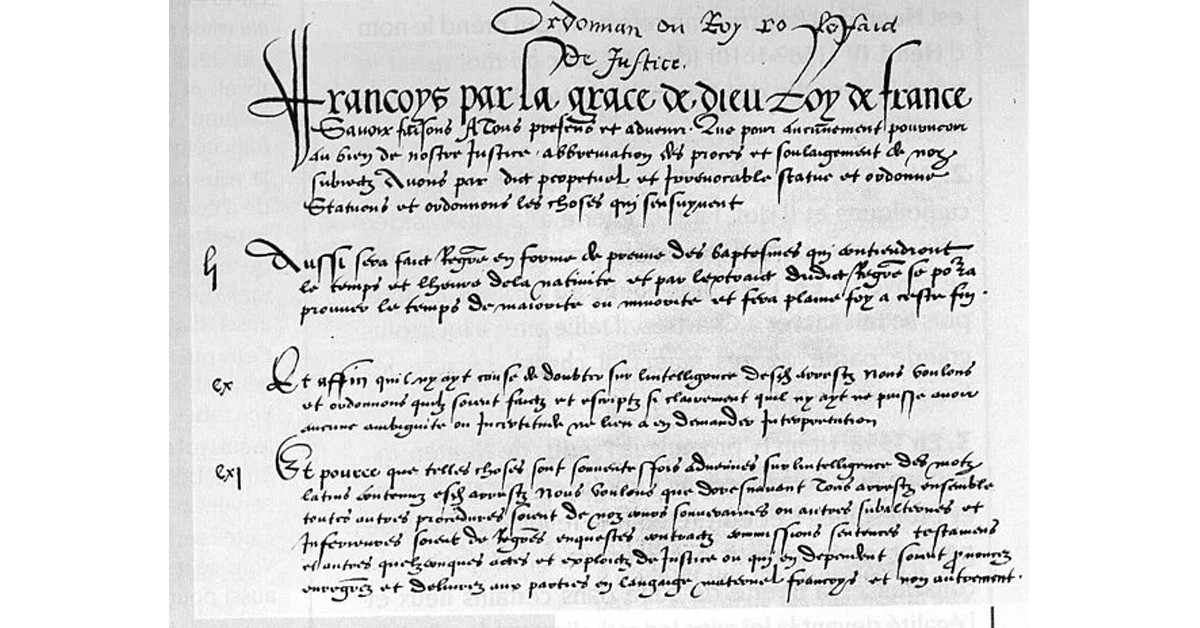 Ordonnan du Roy
De Justice.
françoys par la grace de dieu Roy de france
Savoir faisons A Tous presens et advenir. Que pour aucunement pourveoir
au bien de nostre Justice abbreviation des proces et soulaigement de noz
subiectz Avons par edict perpetuel et Irrevocable statue et ordonne
Statuons et ordonnons les choses qui sensuyvent
Aussi sera faict Regre en forme de preuve des baptesmes qui contiendront
le temps et lheure dela nativite et par lextraict dudict Regre se pora
prouver le temps de maiorite ou minorite et fera plaine foy a ceste fin.
cx Et affin quil ny ayt cause de doubter sur lintelligence desd arrestz Nous Voulons
et ordonnons quilz soient faictz et escriptz si clairement quil ny ayt ne puisse avoir
aucune ambiguite ou Incertitude ne lieu a en demander Interpretation
cxj Et pource que telles choses sont souventesffois advenues sur lintelligence des motz
latins contenuz esd arrestz Nous Voulons que doresnavant Tous arrestz ensemble
toutes autres procedures soient de noz cours souveraines ou autres subalternes et
Inferieures soient de Regres enquestes contractz commissions sentences testamens
et autres quelzconques actes et exploictz de Justice ou qui en dependent soient pnoncez
enregrez et delivrez aux parties en langaige maternel françoys et non autrement.